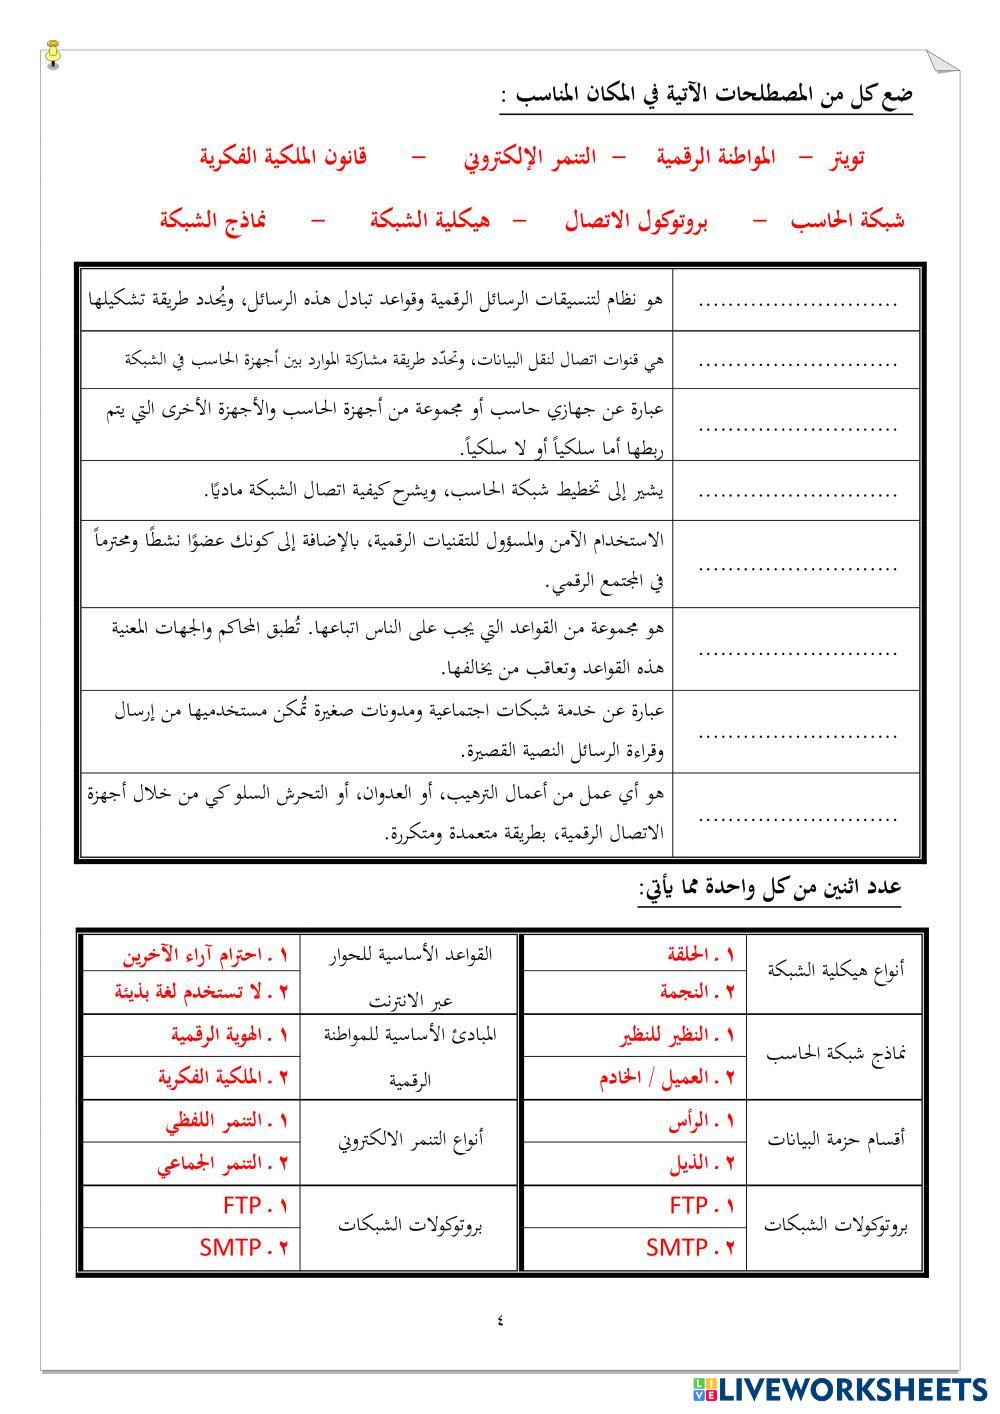 ضع كل من المصطلحات الآتية في المكان المناسب :
تويتر – المواطنة الرقمية – التنمر الإلكتروني – قانون الملكية الفكرية
شبكة الحاسب – بروتوكول الاتصال – هيكلية الشبكة – نماذج الشبكة
........................... هو نظام لتنسيقات الرسائل الرقمية وقواعد تبادل هذه الرسائل، ويُحدد طريقة تشكيلها
........................... هي قنوات اتصال لنقل البيانات، وتحدّد طريقة مشاركة الموارد بين أجهزة الحاسب في الشبكة
........................... عبارة عن جهازي حاسب أو مجموعة من أجهزة الحاسب والأجهزة الأخرى التي يتم
ربطها أما سلكياً أو لا سلكياً.
........................... يشير إلى تخطيط شبكة الحاسب، ويشرح كيفية اتصال الشبكة ماديًا.
........................... الاستخدام الآمن والمسؤول للتقنيات الرقمية، بالإضافة إلى كونك عضوًا نشطًا ومحترماً
في المجتمع الرقمي.
........................... هو مجموعة من القواعد التي يجب على الناس اتباعها. تُطبق المحاكم والجهات المعنية
هذه القواعد وتعاقب من يخالفها.
........................... عبارة عن خدمة شبكات اجتماعية ومدونات صغيرة تُمكن مستخدميها من إرسال
وقراءة الرسائل النصية القصيرة.
........................... هو أي عمل من أعمال الترهيب، أو العدوان، أو التحرش السلوكي من خلال أجهزة
الاتصال الرقمية، بطريقة متعمدة ومتكررة.
عدد اثنين من كل واحدة مما يأتي:
أنواع هيكلية الشبكة
١ . الحلقة
٢ . النجمة
القواعد الأساسية للحوار
عبر الانترنت
١ . احترام آراء الآخرين
٢ . لا تستخدم لغة بذيئة
نماذج شبكة الحاسب
١ . النظير للنظير
٢ . العميل / الخادم
المبادئ الأساسية للمواطنة
الرقمية
١ . الهوية الرقمية
٢ . الملكية الفكرية
أقسام حزمة البيانات
١ . الرأس
٢ . الذيل
أنواع التنمر الالكتروني
١ . التنمر اللفظي
٢ . التنمر الجماعي
بروتوكولات الشبكات
١ . FTP
٢ . SMTP
بروتوكولات الشبكات
١ . FTP
٢ . SMTP
٤
LIVE LIVEWORKSHEETS